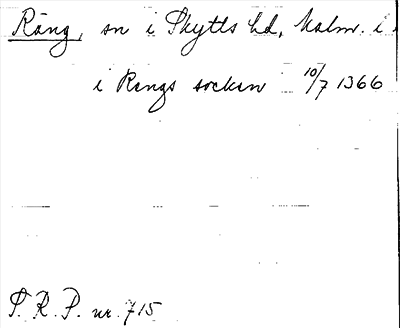 Räng, sn i Skytts hd, Malm. l
i Rengs sockæn 10/7 1366
S. R. P. nr. 715